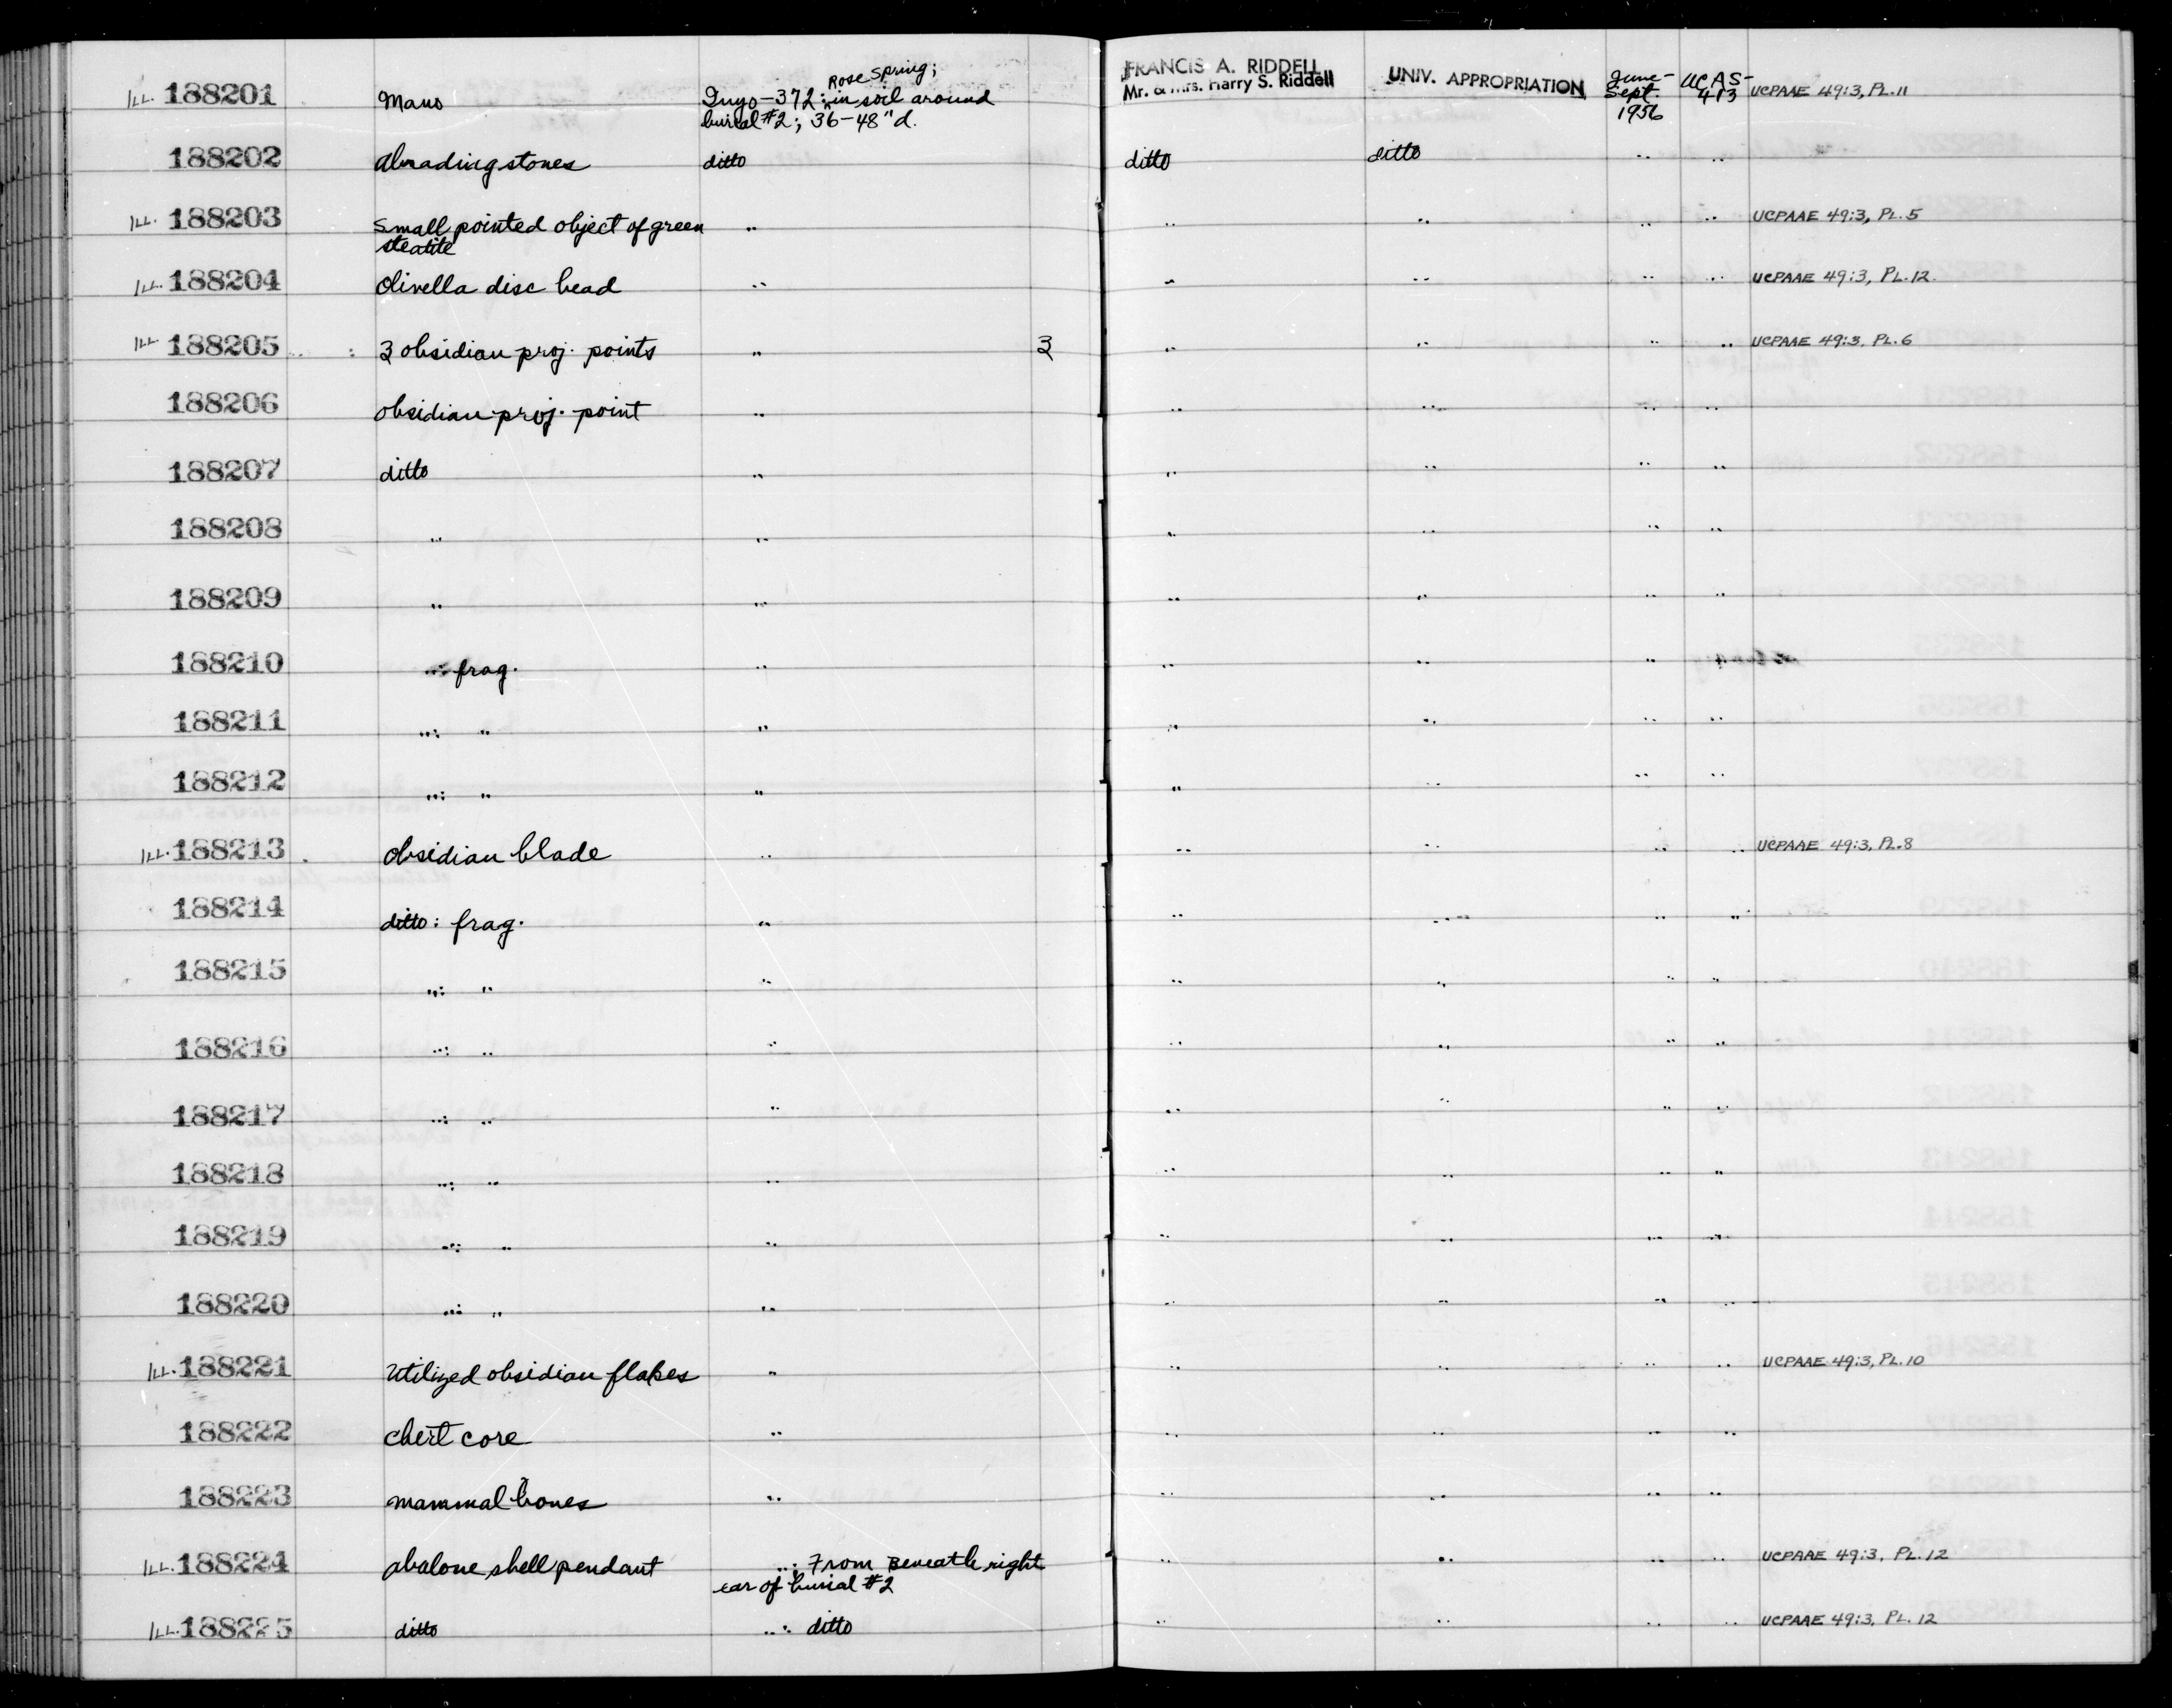 ILL. 188201 Mano Inyo-372: Rose Spring; in soil around burial #2; 36-48" d. FRANCIS A. RIDDELL Mr. & Mrs. Harry S. Riddell UNIV. APPROPRIATION June-Sept. 1956 UCAS-413 UCPAAE 49:3, PL. 11
188202 abrading stones ditto ditto ditto " "
ILL. 188203 Small pointed object of green steatite " " " " " UCPAAE 49:3, PL. 5
ILL. 188204 Olivella disc bead " " " " " UCPAAE 49:3, PL. 12.
ILL 188205 : 3 obsidian proj. points " 3 " " " " UCPAAE 49:3, PL. 6
188206 obsidian proj. point " " " " "
188207 ditto " " " " "
188208 " " " " " "
188209 " " " " " "
188210 ": frag. " " " "
188211 ": " " " " " "
188212 ": " " " " " "
ILL. 188213 obsidian blade " " " " " UCPAAE 49:3, PL. 8
188214 ditto: frag. " " " " "
188215 ": " " " " " "
188216 ": " " " " " "
188217 ": " " " " " "
188218 ": " " " " " "
188219 ": " " " " " "
188220 ": " " " " " "
ILL. 188221 Utilized obsidian flakes " " " " " UCPAAE 49:3, PL. 10
188222 chert core " " " " "
188223 mammal bones " " " " "
ILL. 188224 abalone shell pendant ": From Beneath right ear of burial #2 " " " " UCPAAE 49:3, PL. 12
ILL. 188225 ditto ": ditto " " " " UCPAAE 49:3, PL. 12